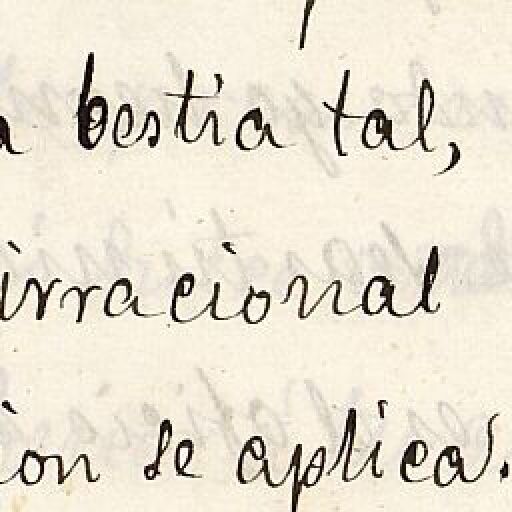 a bestia tal,
irracional
ion se aplica.